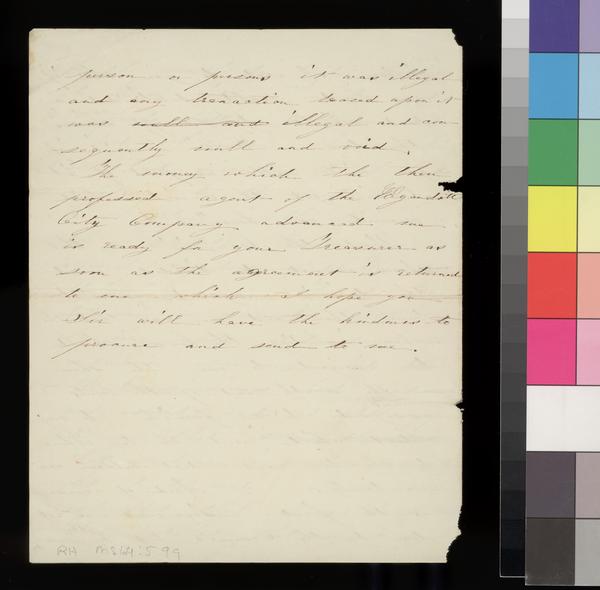 person or persons it was illegal
and any trenaction based upon it
was null and illegal and con-
sequently null and void.
The money which the then
professed agent of the Wyandott
City Company advanced me
is ready for your Treasurer as
soon as the agreement is returned
to me which I hope you
Sir will have the kindness to
procure and send to me.
RH MS 64:5 99